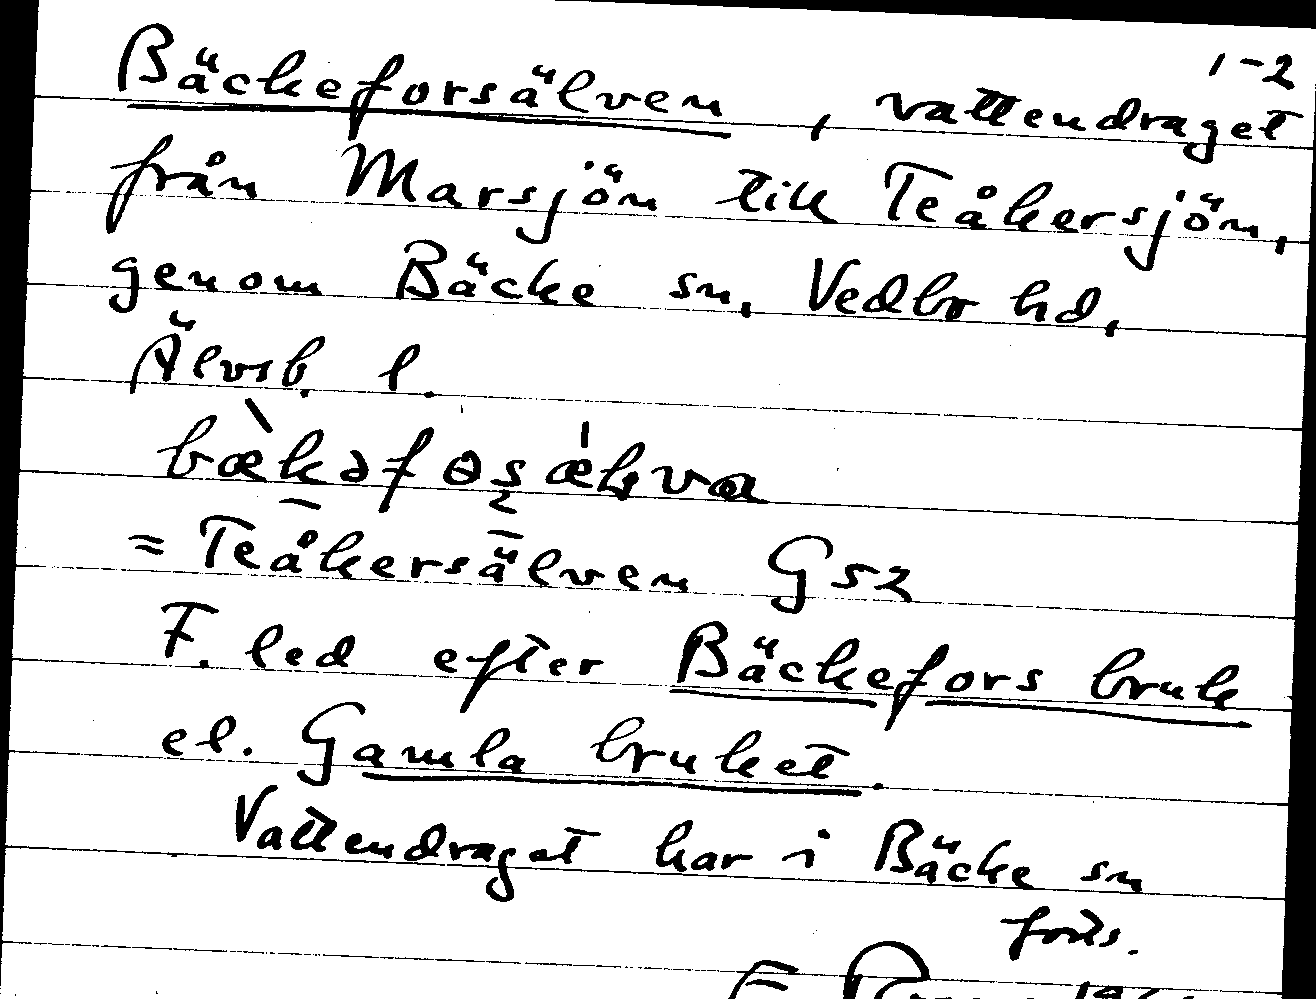 1-2
Bäckeforsälven, vattendraget
från Marsjön till Teåkersjön,
genom Bäcke sn, Vedbo hd,
Älvsb. l.
= Teåkersälven G52
F. led efter Bäckefors bruk
el. Gamla bruket.
Vattendraget har i Bäcke sn
forts.